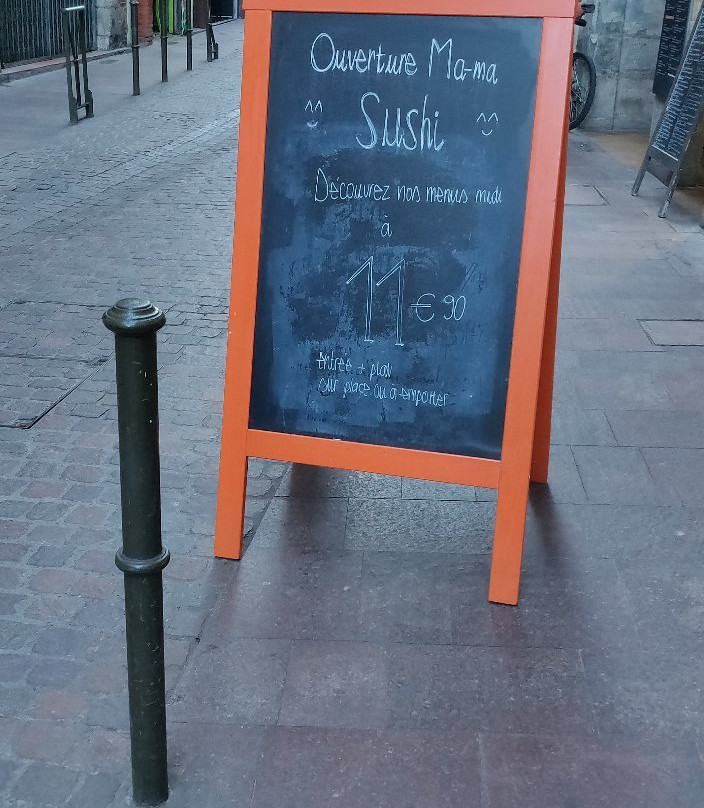 Ouverture Ma-ma
Sushi
Découvrez nos menus midi
à
11€90
entrée + plat
sur place ou à emporter